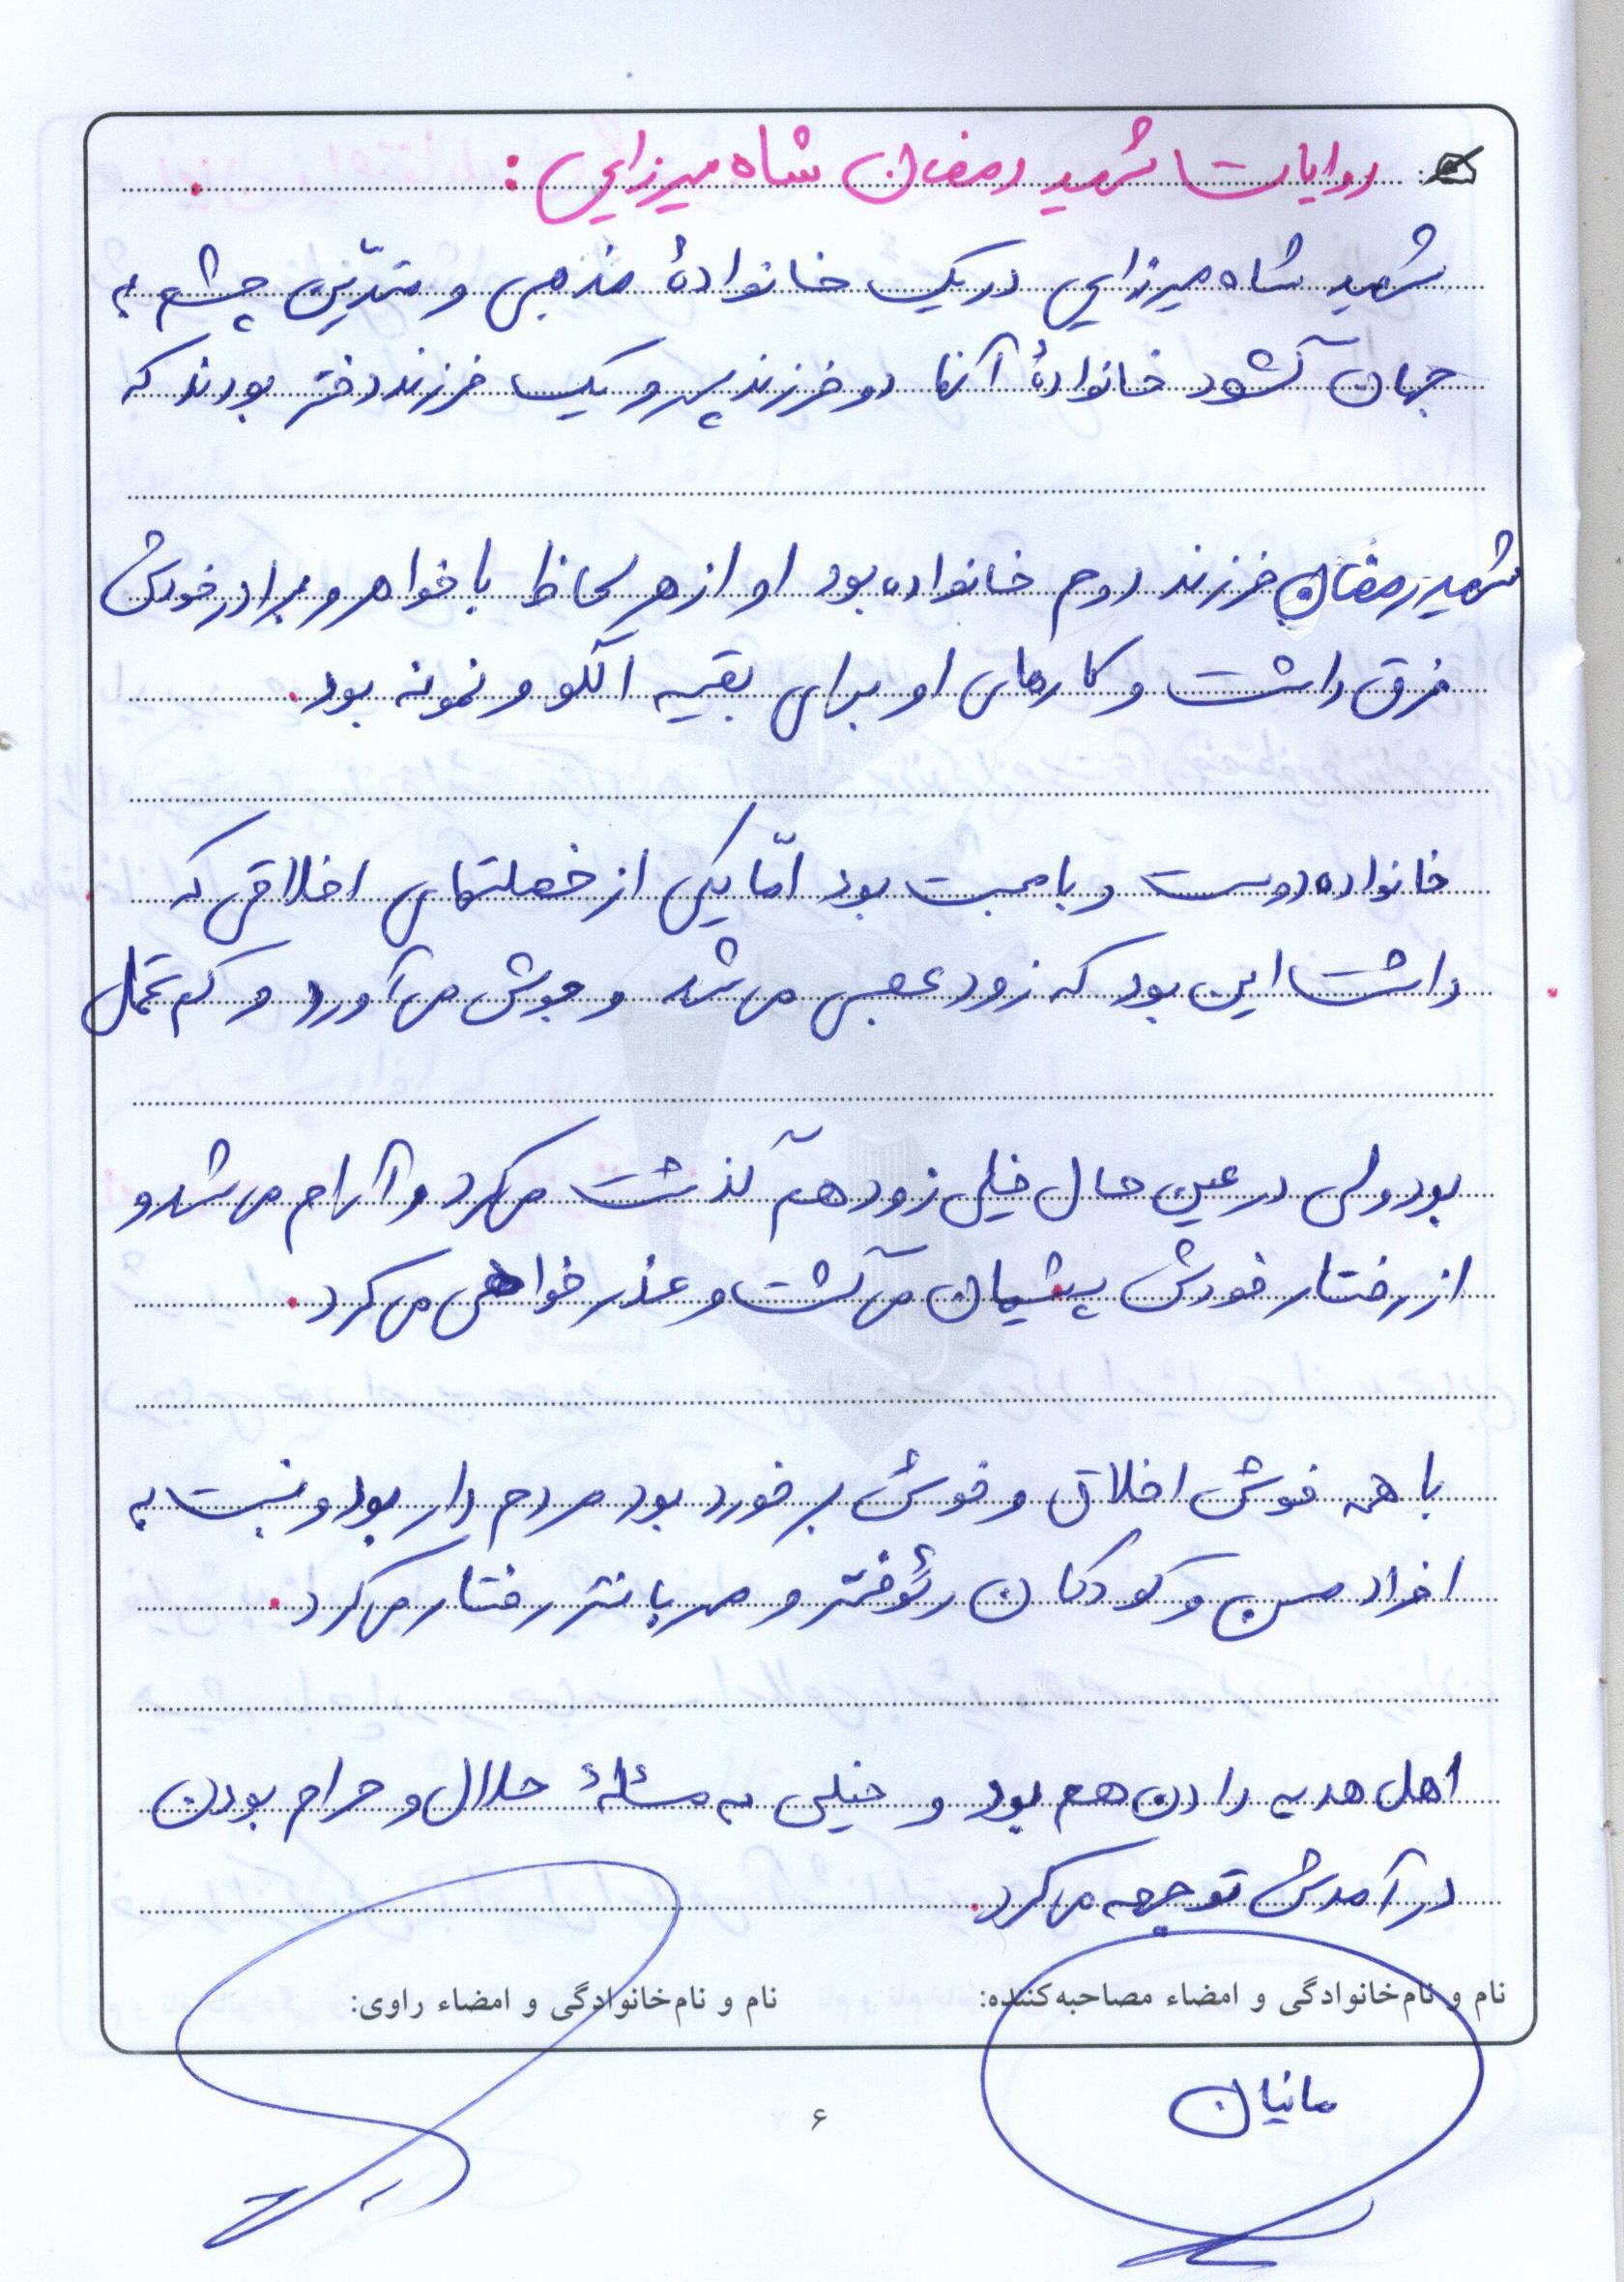 روایات شهید رمضان شاه میرزایی:
شهید شاه میرزایی در یک خانوادهٔ مذهبی و متدیّن چشم به
جهان گشود خانوادهٔ آنها دو فرزند پسر و یک فرزند دختر بودند که
شهید رمضان فرزند دوم خانواده بود او از هر لحاظ با خواهر و برادر خودش
فرق داشت و کارهای او برای بقیه الگو و نمونه بود.
خانواده دوست و با محبت بود امّا یکی از خصلتهای اخلاقی که
داشت این بود که زود عصبی می‌شد و جوش می‌آورد و کم تحمل
بود ولی در عین حال خیلی زود هم گذشت می‌کرد و آرام می‌شد و
از رفتار خودش پشیمان می‌گشت و عذر خواهی می‌کرد.
با همه خوش اخلاق و خوش برخورد بود مردم دار بود و نسبت به
افراد مسن و کودکان رئوفتر و مهربانتر رفتار می‌کرد.
اهل هدیه دادن هم بود و خیلی به مسئلهٔ حلال و حرام بودن
درآمدش توجهه می‌کرد.
نام و نام‌خانوادگی و امضاء مصاحبه‌کننده: نام و نام‌خانوادگی و امضاء راوی:
مانیان
۶